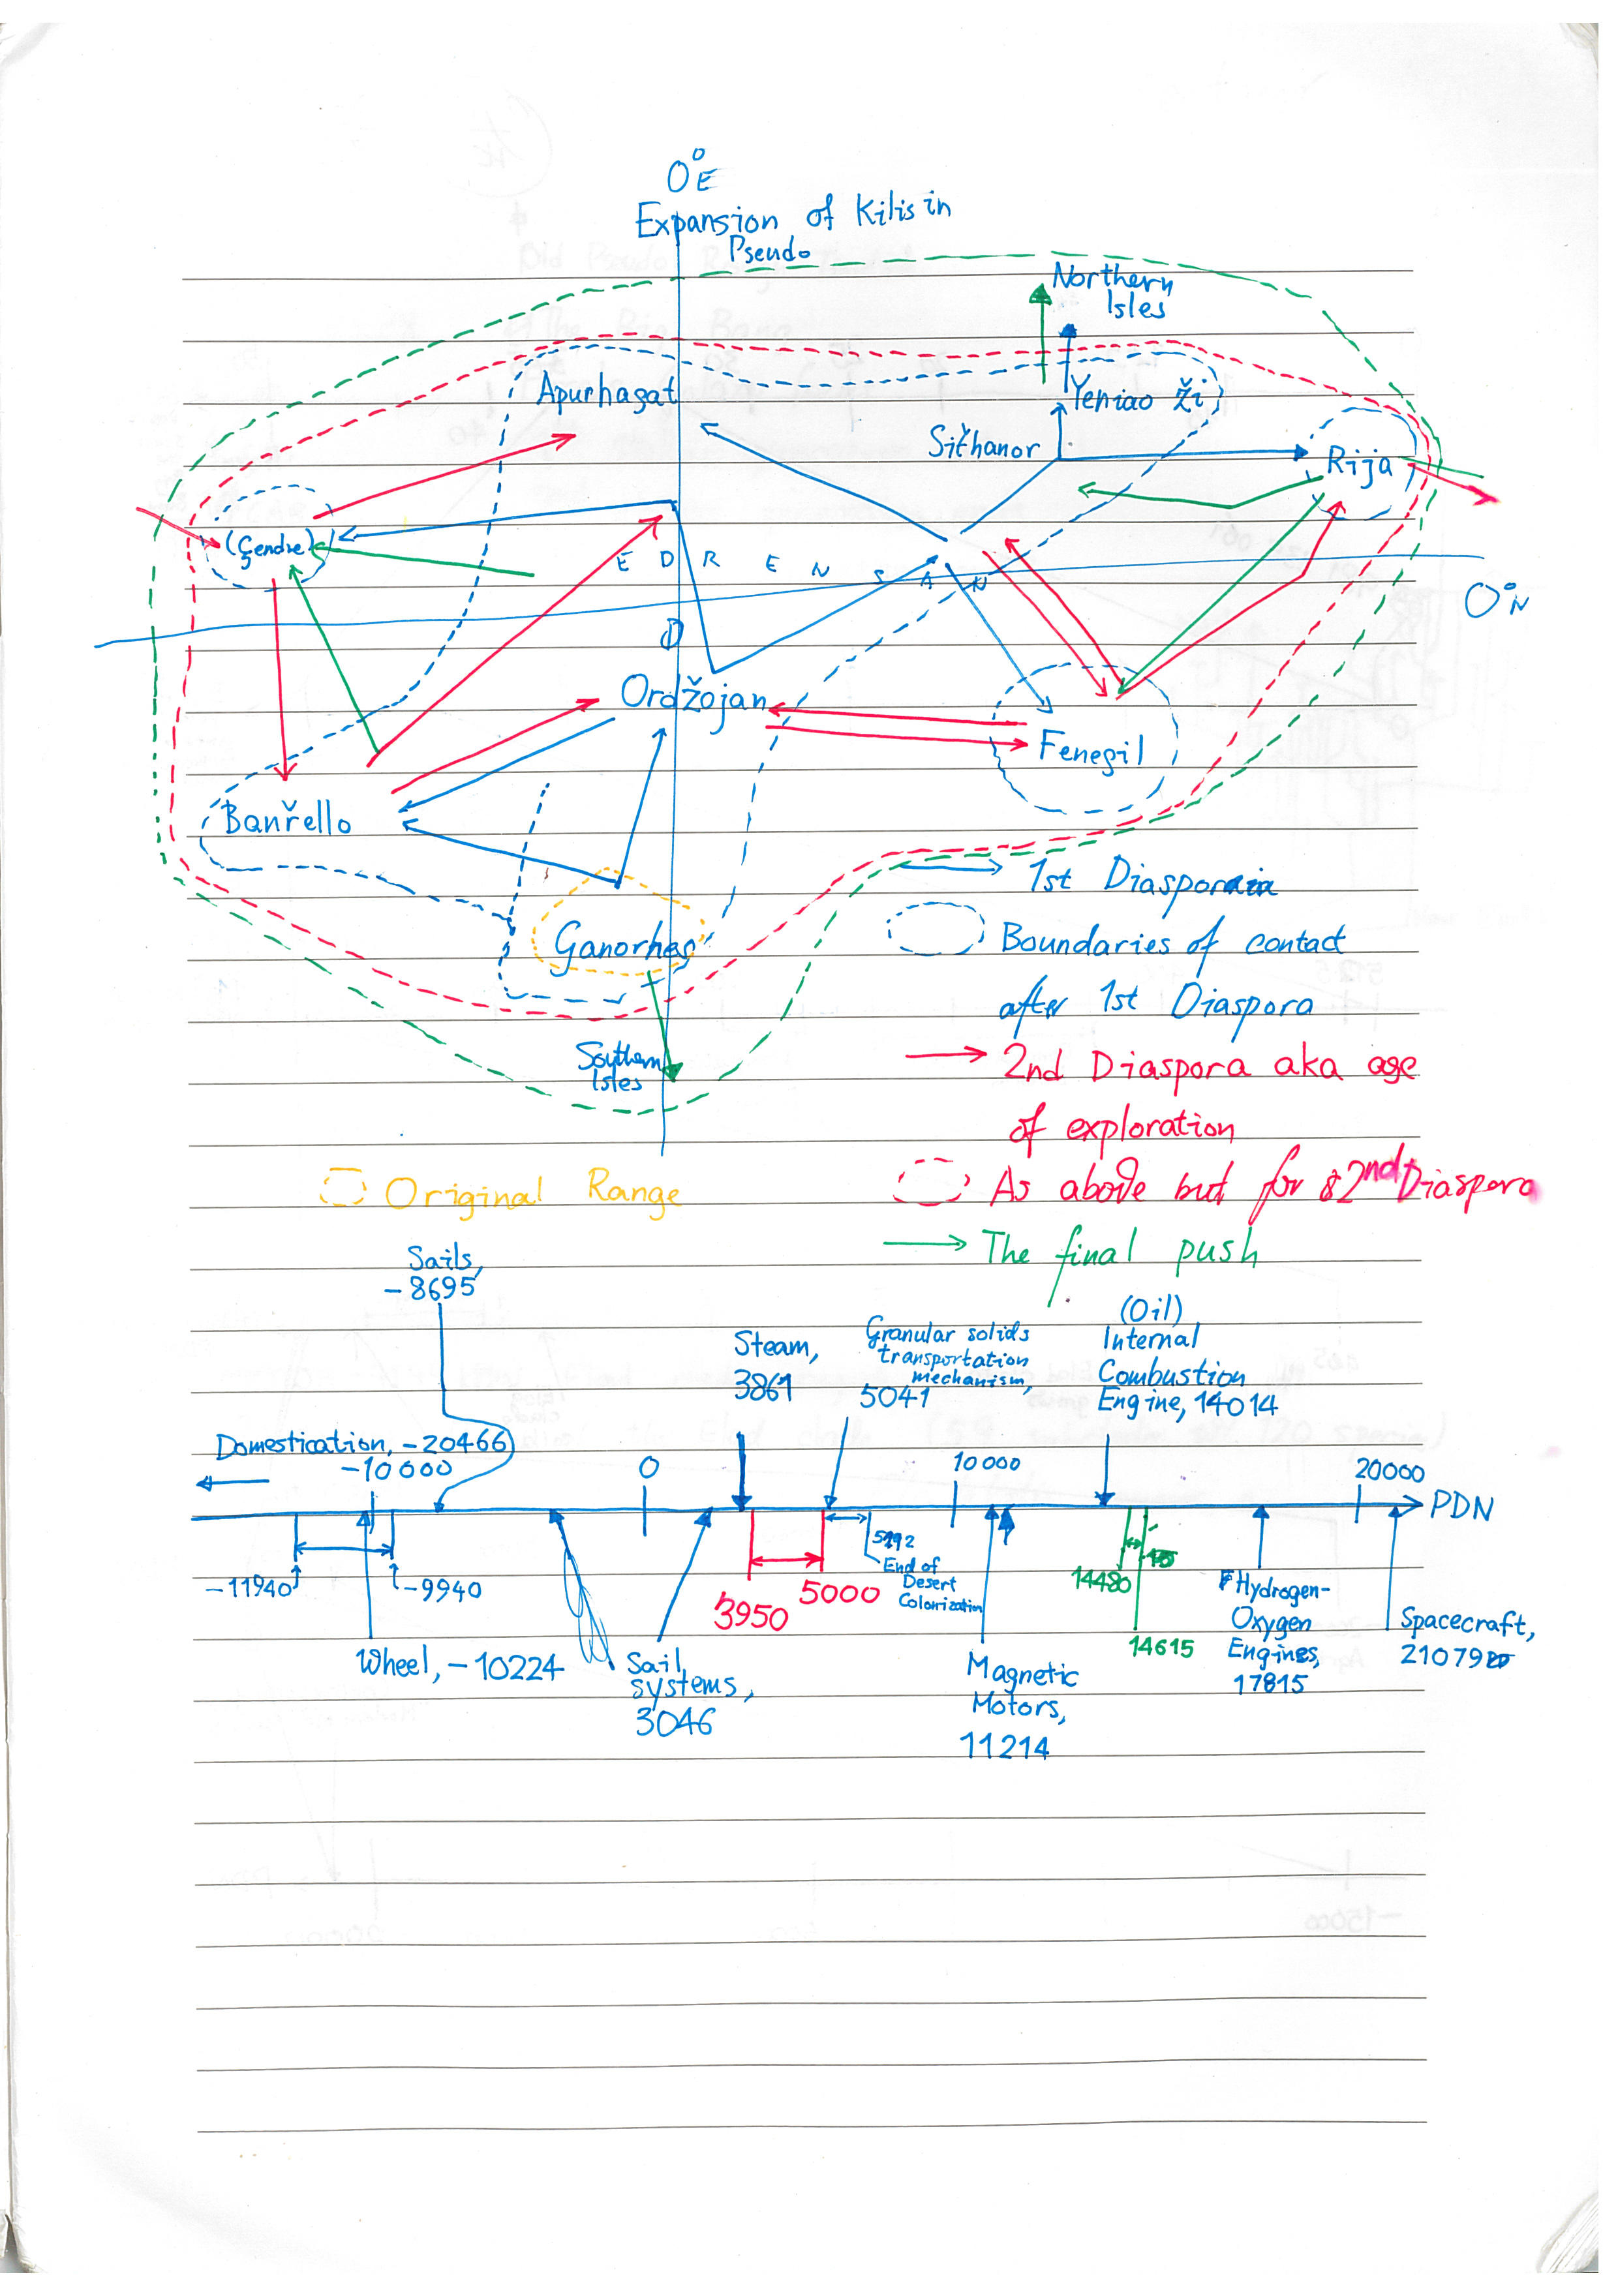 0°E
Expansion of Kilisin
Pseudo
Northern
Isles
Apurhagat
Yeniao Ži
Siťhanor
Rija
(Çendre)
E D R E N S A N
0°N
D
Ordžojan
Fenegil
Banřello
1st Diaspora
Ganorhes
Boundaries of contact
after 1st Diaspora
Southern
Isles
2nd Diaspora aka age
of exploration
Original Range
As above but for 2nd Diaspora
The final push
Sails,
-8695
(Oil)
Internal
Combustion
Engine, 14014
Steam,
3861
Granular solids
transportation
mechanism,
5041
Domestication, -20466
-10000
0
10000
20000
PDN
-11940
-9940
3950
5000
End of
Desert
Colonization
14480
14615
Wheel, -10224
Sail
systems,
3046
Magnetic
Motors,
11214
Hydrogen-
Oxygen
Engines,
17815
Spacecraft,
21079